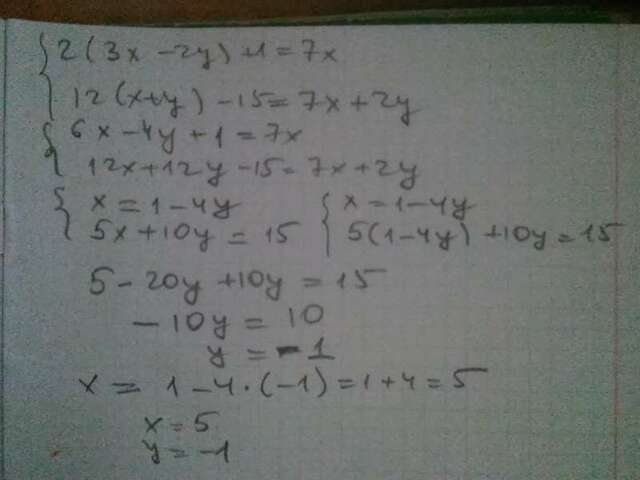 2(3x-2y)+1=7x
12(x+y)-15=7x+2y
6x-4y+1=7x
12x+12y-15=7x+2y
x=1-4y x=1-4y
5x+10y=15 5(1-4y)+10y=15
5-20y+10y=15
-10y=10
y=-1
x=1-4·(-1)=1+4=5
x=5
y=-1